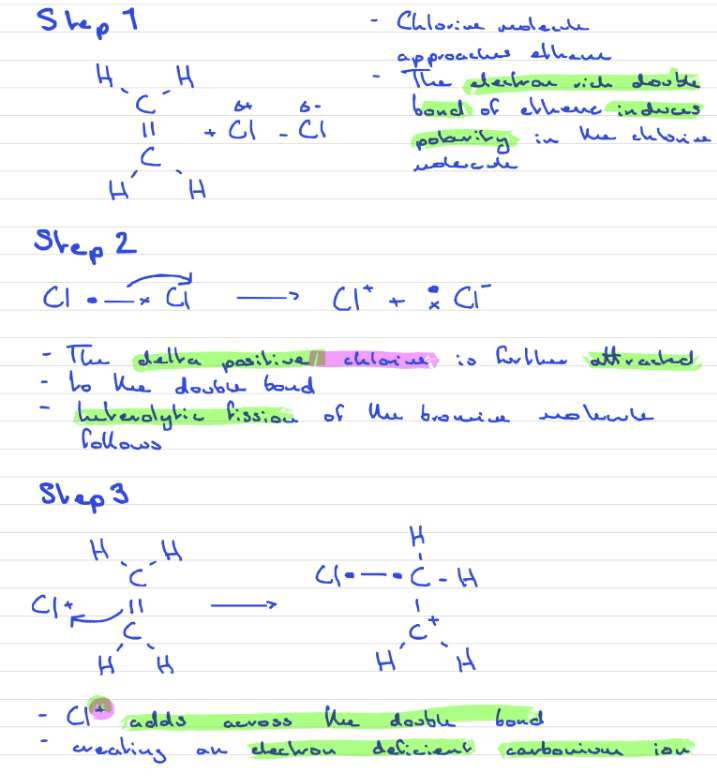 Step 1
- Chlorine molecule
approaches ethene
- The electron rich double
bond of ethene induces
polarity in the chlorine
molecule
H H
C
δ+ δ-
|| + Cl - Cl
C
H H
Step 2
Cl •—x Cl → Cl⁺ + •x Cl⁻
- The delta positive chlorine is further attracted
- to the double bond
- heterolytic fission of the bromine molecule
follows
Step 3
H H
C
Cl+ || →
C
H H
H
Cl•—•C-H
C+
H H
- Cl⁺ adds across the double bond
- creating an electron deficient carbonium ion